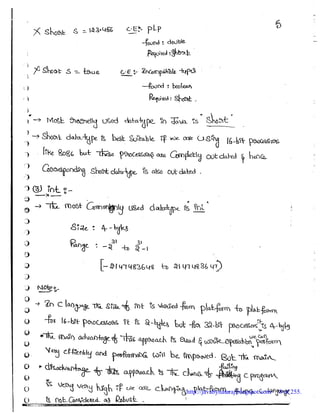 5
X short s = 123.456 C.E:- PLP
found : double
Required : short
X short s = true C.E :- Incompatible types
found : boolean
Required : short.
→ Most rarely used datatype in Java is "short"
→ Short datatype is best suitable if we are using 16-bit processors
like 8086 but these processors are completely outdated & hence
Corresponding short datatype is also outdated.
(3) int :-
→ The most commonly used datatype is int
Size : 4-bytes
Range : -2^31 to 2^31-1
[-2147483648 to 2147483647]
Notes:-
→ In C language the size of int is varied from platform to platform
for 16-bit processors it is 2-bytes but for 32-bit processors it is 4-bytes
The main advantage of this approach is read & write operation we can perform
very efficiently and performance will be improved. But the main
disadvantage of this approach is the chance of failing C program
is very very high if we are changing platform
is not considered as Robust.